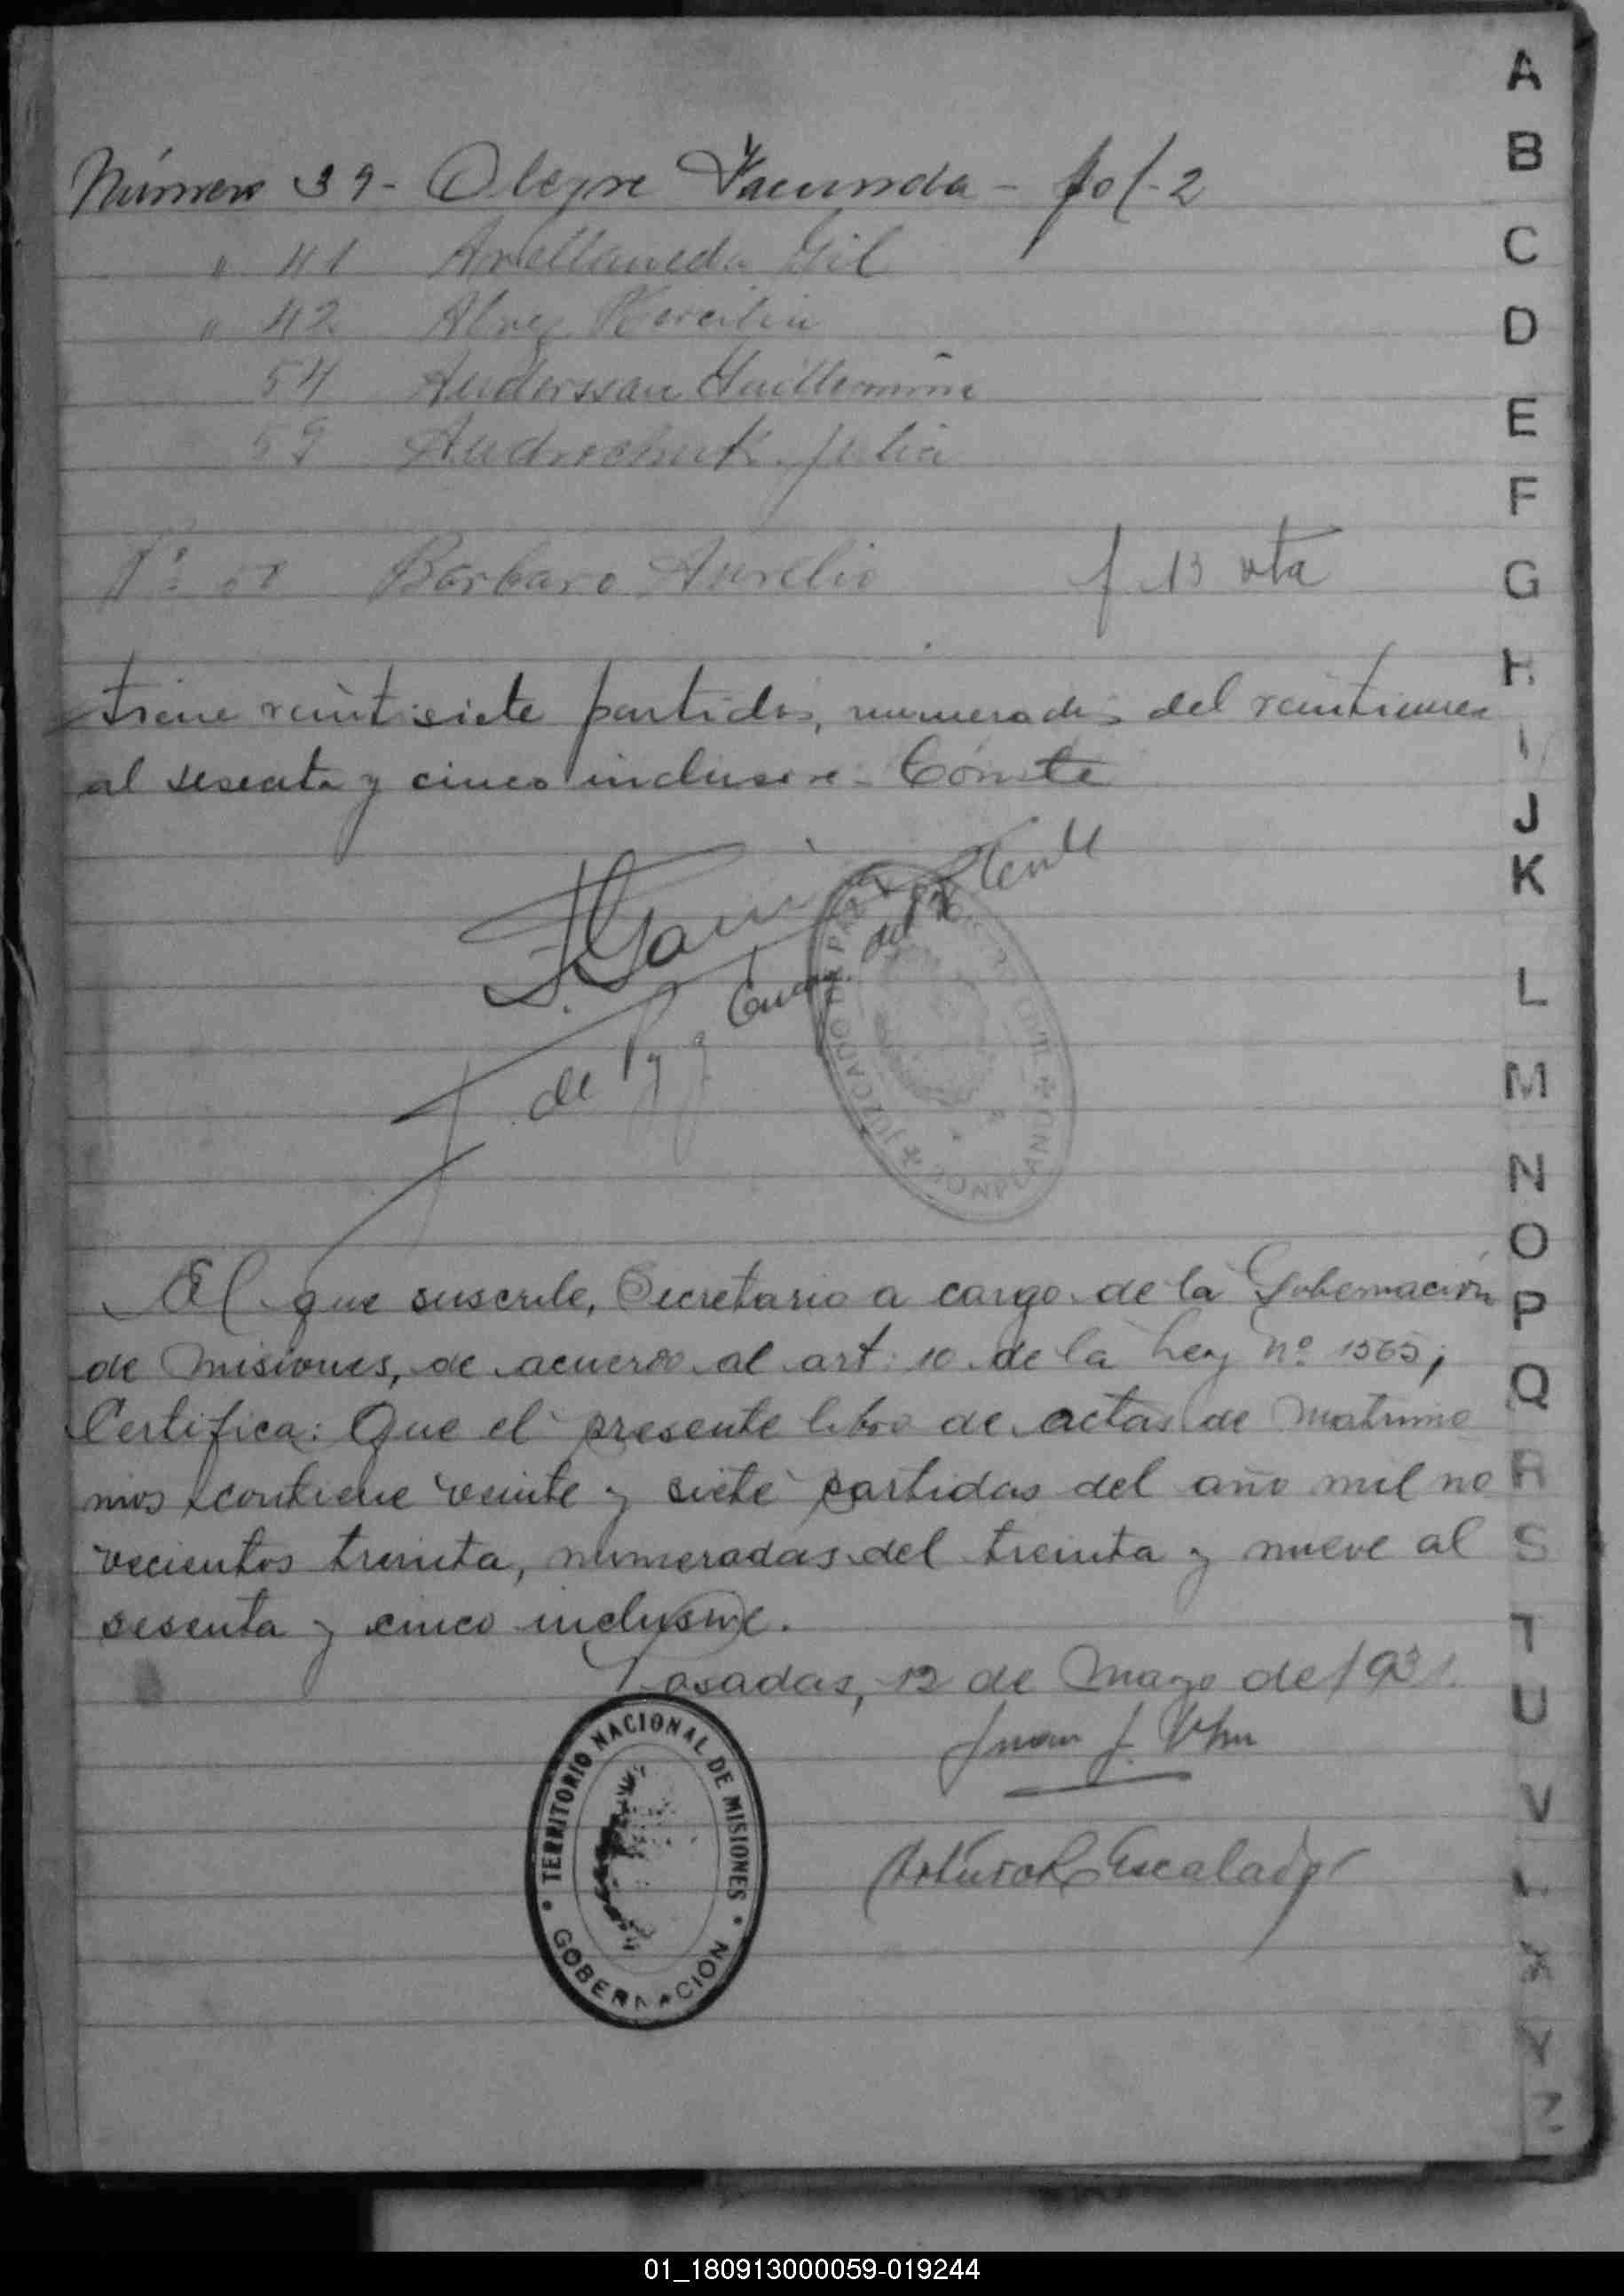 Número 39 - Alegre Facunda - fol-2
" 41 Avellaneda Gil
" 42 Alvez Hercilia
54 Anderssan Guillermina
59 Andrechuk Julia
Nº Barbaro Aurelio f 13 vta
Tiene veintisiete partidas, numeradas del
al sesenta y cinco inclusive - Conste
de
JUZGADO DE PAZ
El que suscribe, Secretario a cargo de la Gobernación
de Misiones, de acuerdo al art: 10 de la Ley Nº 1565;
Certifica: Que el presente libro de actas de matrimo
nios contiene veinte y siete partidas del año mil no
vecientos treinta, numeradas del treinta y nueve al
sesenta y cinco inclusive.
Posadas, 12 de Mayo de 1931.
Juan J.
TERRITORIO NACIONAL DE MISIONES
GOBERNACIÓN
Arturo Escalada
A
B
C
D
E
F
G
H
I
J
K
L
M
N
O
P
Q
R
S
T
U
V
X
Y
Z
01_180913000059-019244